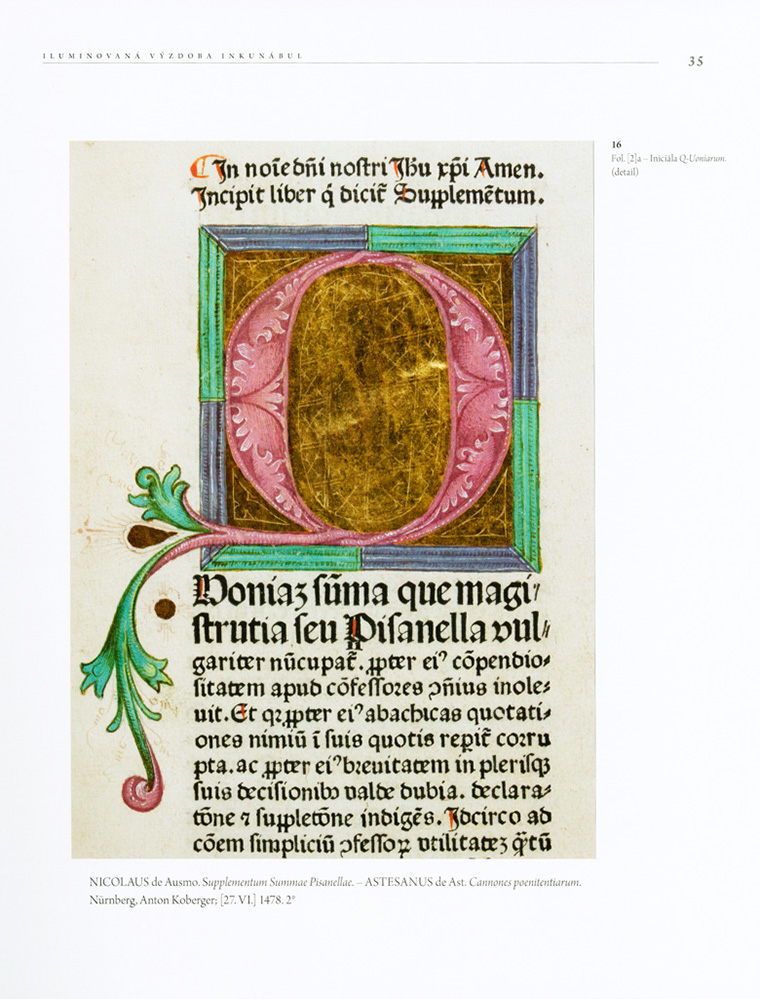 ILUMINOVANÁ VÝZDOBA INKUNÁBUL
35
In noīe dn̄i noſtri Jhu xp̄i Amen.
Incipit liber q̄ dicit̄ Supplemētum.
16
Fol. [2]a – Iniciála Q-Uoniarum.
(detail)
Voniaꝫ ſūma que magi⸗
ſtrutia ſeu Piſanella vul⸗
gariter nūcupat̄. ꝓpter eiꝰ cōpendio⸗
ſitatem apud cōfeſſores ꝯn̄ius inole⸗
uit. Et qꝛ ꝓpter eiꝰ abachicas quotati⸗
ones nimiū ī ſuis quotis reꝑit̄ corru
pta. ac ꝓpter eiꝰ breuitatem in pleriſqꝫ
ſuis deciſionibꝰ valde dubia. declara⸗
tōne ⁊ ſuppletōne indigēs. Idcirco ad
cōem ſimpliciū ꝯfeſſoꝝ vtilitateꝫ q̄tū
NICOLAUS de Ausmo. Supplementum Summae Pisanellae. – ASTESANUS de Ast. Cannones poenitentiarum.
Nürnberg, Anton Koberger; [27. VI.] 1478. 2°